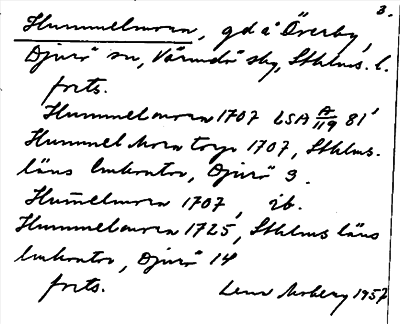 3.
Hummelmora, gd å Överby,
Djurö sn, Värmdö skg, Sthlms. l.
forts.
Hummelmora 1707 LSA A/119 81'
Hummel Mora torp 1707, Sthlms.
läns lmkontor, Djurö 3.
Hum̄elmora 1707, ib.
Hummelmora 1725, Sthlms läns
lmkontor, Djurö 14
forts. Lena Moberg 1957